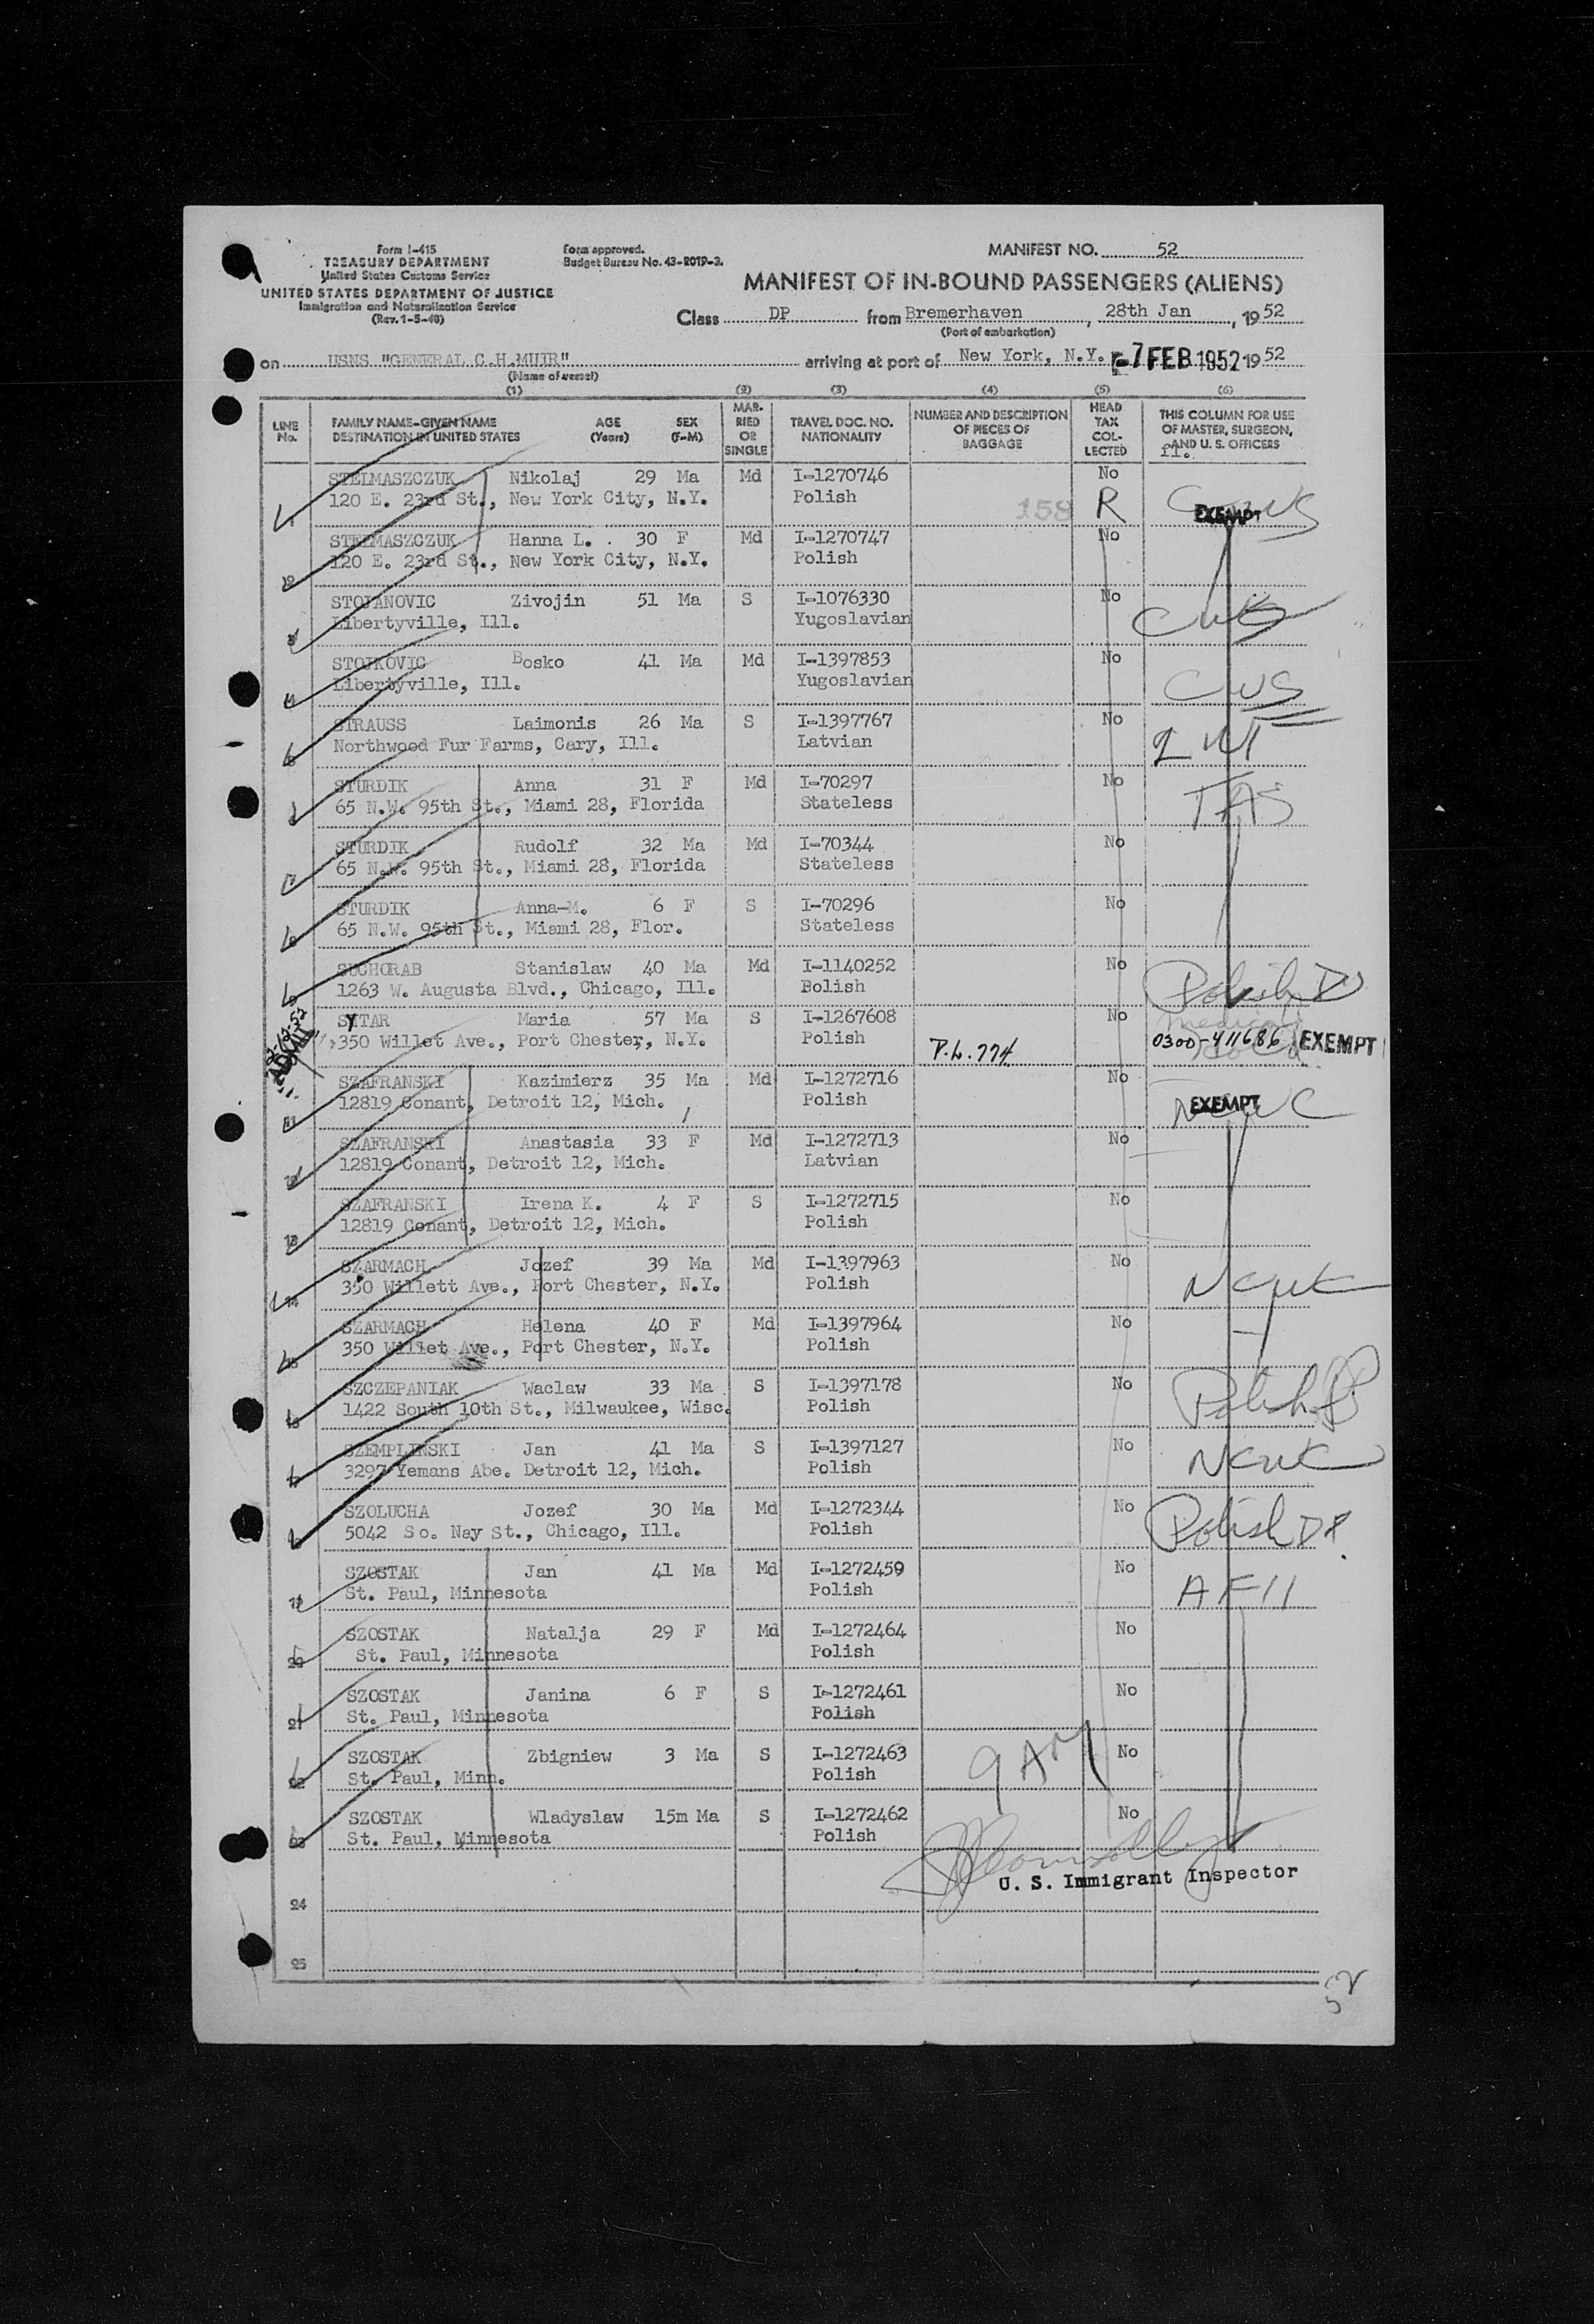 Form I-415
TREASURY DEPARTMENT
United States Customs Service
UNITED STATES DEPARTMENT OF JUSTICE
Immigration and Naturalization Service
(Rev. 1-5-48)
Form approved.
Budget Bureau No. 43-R019-3.
MANIFEST NO. 52
MANIFEST OF IN-BOUND PASSENGERS (ALIENS)
Class DP from Bremerhaven, 28th Jan, 1952
(Port of embarkation)
on USNS "GENERAL C.H.MUIR" arriving at port of New York, N.Y. -7 FEB 1952 1952
(Name of vessel)
(1) (2) (3) (4) (5) (6)
LINE No. FAMILY NAME-GIVEN NAME DESTINATION IN UNITED STATES AGE (Years) SEX (F-M) MARRIED OR SINGLE TRAVEL DOC. NO. NATIONALITY NUMBER AND DESCRIPTION OF PIECES OF BAGGAGE HEAD TAX COLLECTED THIS COLUMN FOR USE OF MASTER, SURGEON, AND U. S. OFFICERS
1 STELMASZCZUK Nikolaj 29 Ma Md I-1270746 No
120 E. 23rd St., New York City, N.Y. Polish 158 R EXEMPT CWS
2 STELMASZCZUK Hanna L. 30 F Md I-1270747 No
120 E. 23rd St., New York City, N.Y. Polish
3 STOJANOVIC Zivojin 51 Ma S I-1076330 No
Libertyville, Ill. Yugoslavian CWS
4 STOJKOVIC Bosko 41 Ma Md I-1397853 No
Libertyville, Ill. Yugoslavian CWS
5 STRAUSS Laimonis 26 Ma S I-1397767 No
Northwood Fur Farms, Cary, Ill. Latvian
6 STURDIK Anna 31 F Md I-70297 No
65 N.W. 95th St., Miami 28, Florida Stateless TAS
7 STURDIK Rudolf 32 Ma Md I-70344 No
65 N.W. 95th St., Miami 28, Florida Stateless
8 STURDIK Anna-M. 6 F S I-70296 No
65 N.W. 95th St., Miami 28, Flor. Stateless
9 SUCHORAB Stanislaw 40 Ma Md I-1140252 No
1263 W. Augusta Blvd., Chicago, Ill. Bolish Polish
SYTAR Maria 57 Ma S I-1267608 No
350 Willet Ave., Port Chester, N.Y. Polish P.L. 774 0300-411686 EXEMPT
11 SZAFRANSKI Kazimierz 35 Ma Md I-1272716 No
12819 Conant, Detroit 12, Mich. Polish EXEMPT NCWC
12 SZAFRANSKI Anastasia 33 F Md I-1272713 No
12819 Conant, Detroit 12, Mich. Latvian
13 SZAFRANSKI Irena K. 4 F S I-1272715 No
12819 Conant, Detroit 12, Mich. Polish
14 SZARMACH Jozef 39 Ma Md I-1397963 No
350 Willett Ave., Port Chester, N.Y. Polish NCWC
15 SZARMACH Helena 40 F Md I-1397964 No
350 Willet Ave., Port Chester, N.Y. Polish
16 SZCZEPANIAK Waclaw 33 Ma S I-1397178 No
1422 South 10th St., Milwaukee, Wisc. Polish Polish
17 SZEMPLINSKI Jan 41 Ma S I-1397127 No
3297 Yemans Abe. Detroit 12, Mich. Polish NCWC
18 SZOLUCHA Jozef 30 Ma Md I-1272344 No
5042 So. Nay St., Chicago, Ill. Polish Polish DP
19 SZOSTAK Jan 41 Ma Md I-1272459 No
St. Paul, Minnesota Polish
20 SZOSTAK Natalja 29 F Md I-1272464 No
St. Paul, Minnesota Polish
21 SZOSTAK Janina 6 F S I-1272461 No
St. Paul, Minnesota Polish
22 SZOSTAK Zbigniew 3 Ma S I-1272463 No
St. Paul, Minn. Polish 9 AM
23 SZOSTAK Wladyslaw 15m Ma S I-1272462 No
St. Paul, Minnesota Polish
U. S. Immigrant Inspector
24
25
52